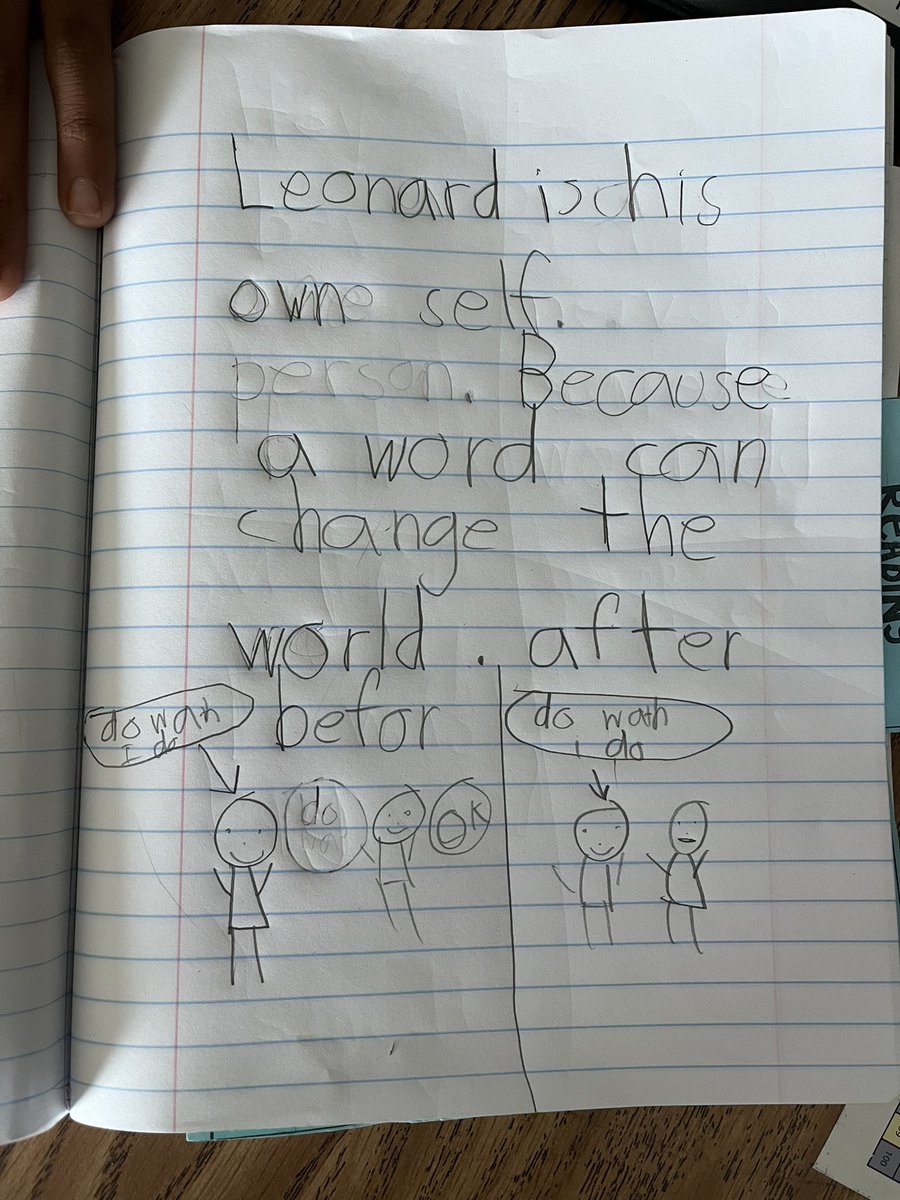 Leonard is his
own self.
person. Because
a word can
change the
world. after
befor
do wath
I do
do
OK
do wath
i do
READING
100